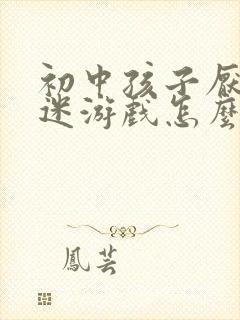 初中孩子厌
迷游戏怎麼
鳳芸